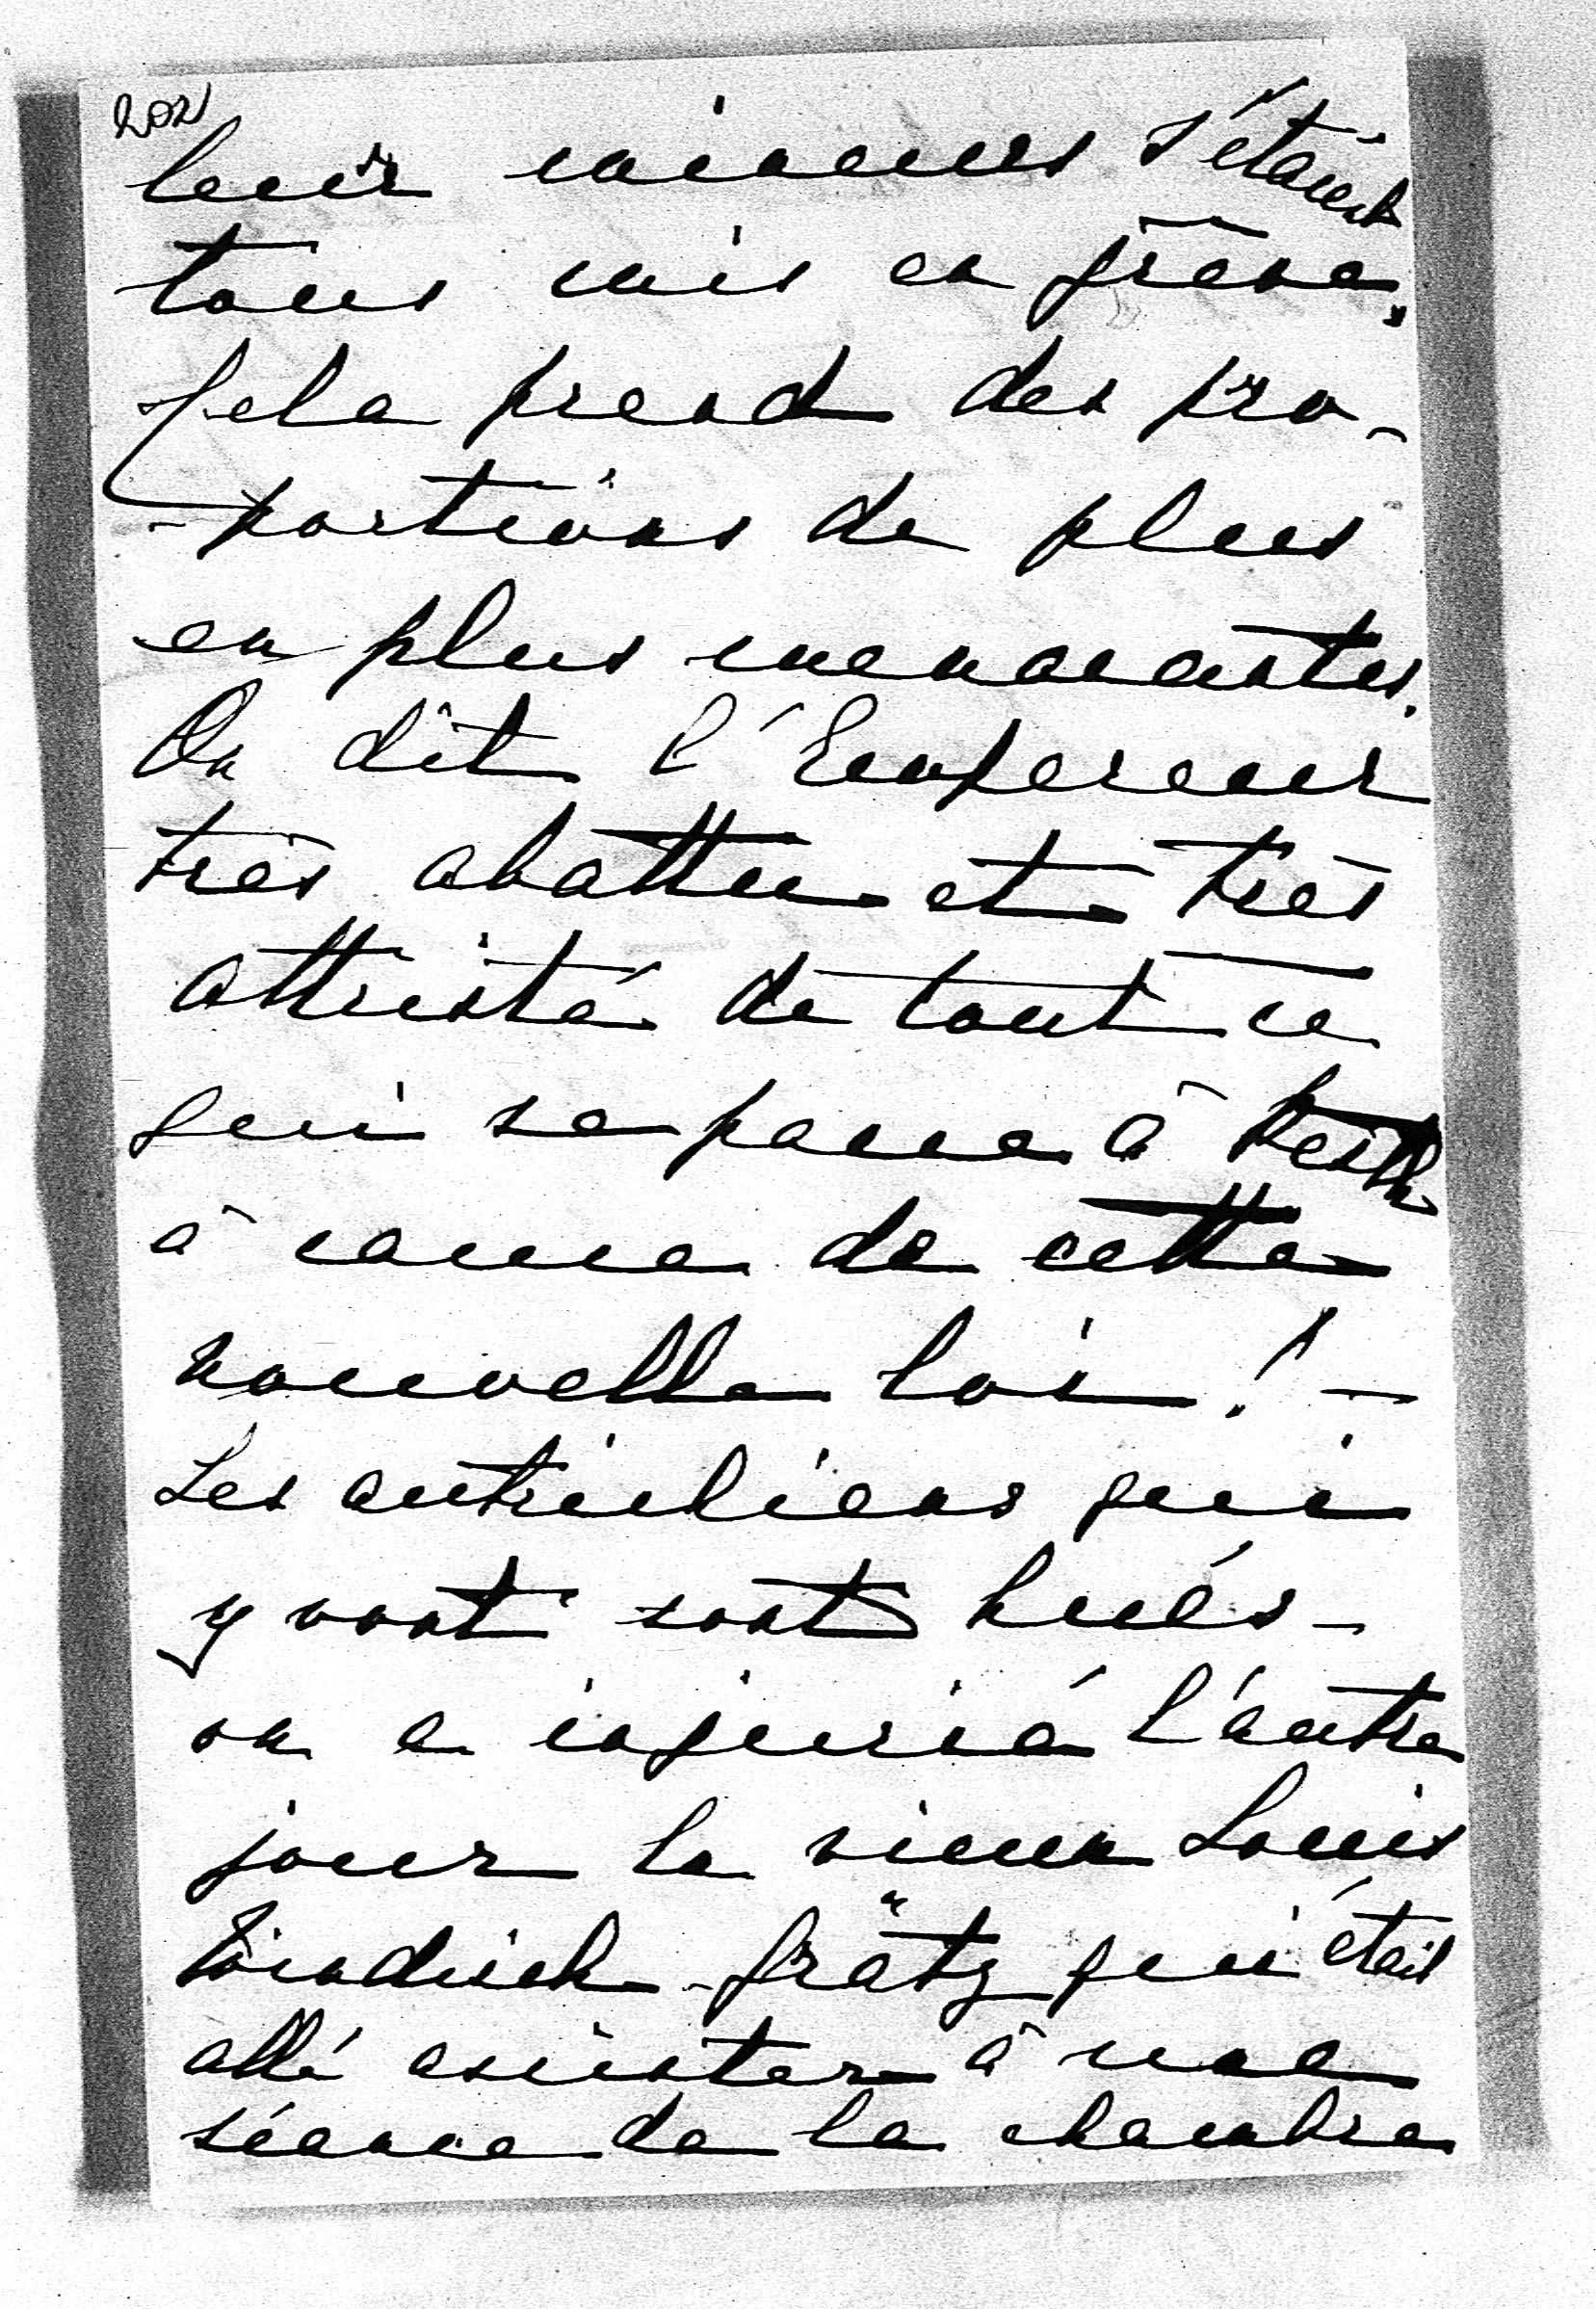 202
leur mineurs s'étant
tous mis en grève.
Cela prend des pro-
-portions de plus
en plus menacantes.
On dit l'Empereur
très abattu et très
attristé de tout ce
qui se passe à Pesth
à cause de cette
nouvelle loi ! —
Les autrichiens qui
y vont sont hués —
on a injurié l'autre
jour le vieux Louis
Windisch-grätz qui était
allé assister à une
séance de la chambre